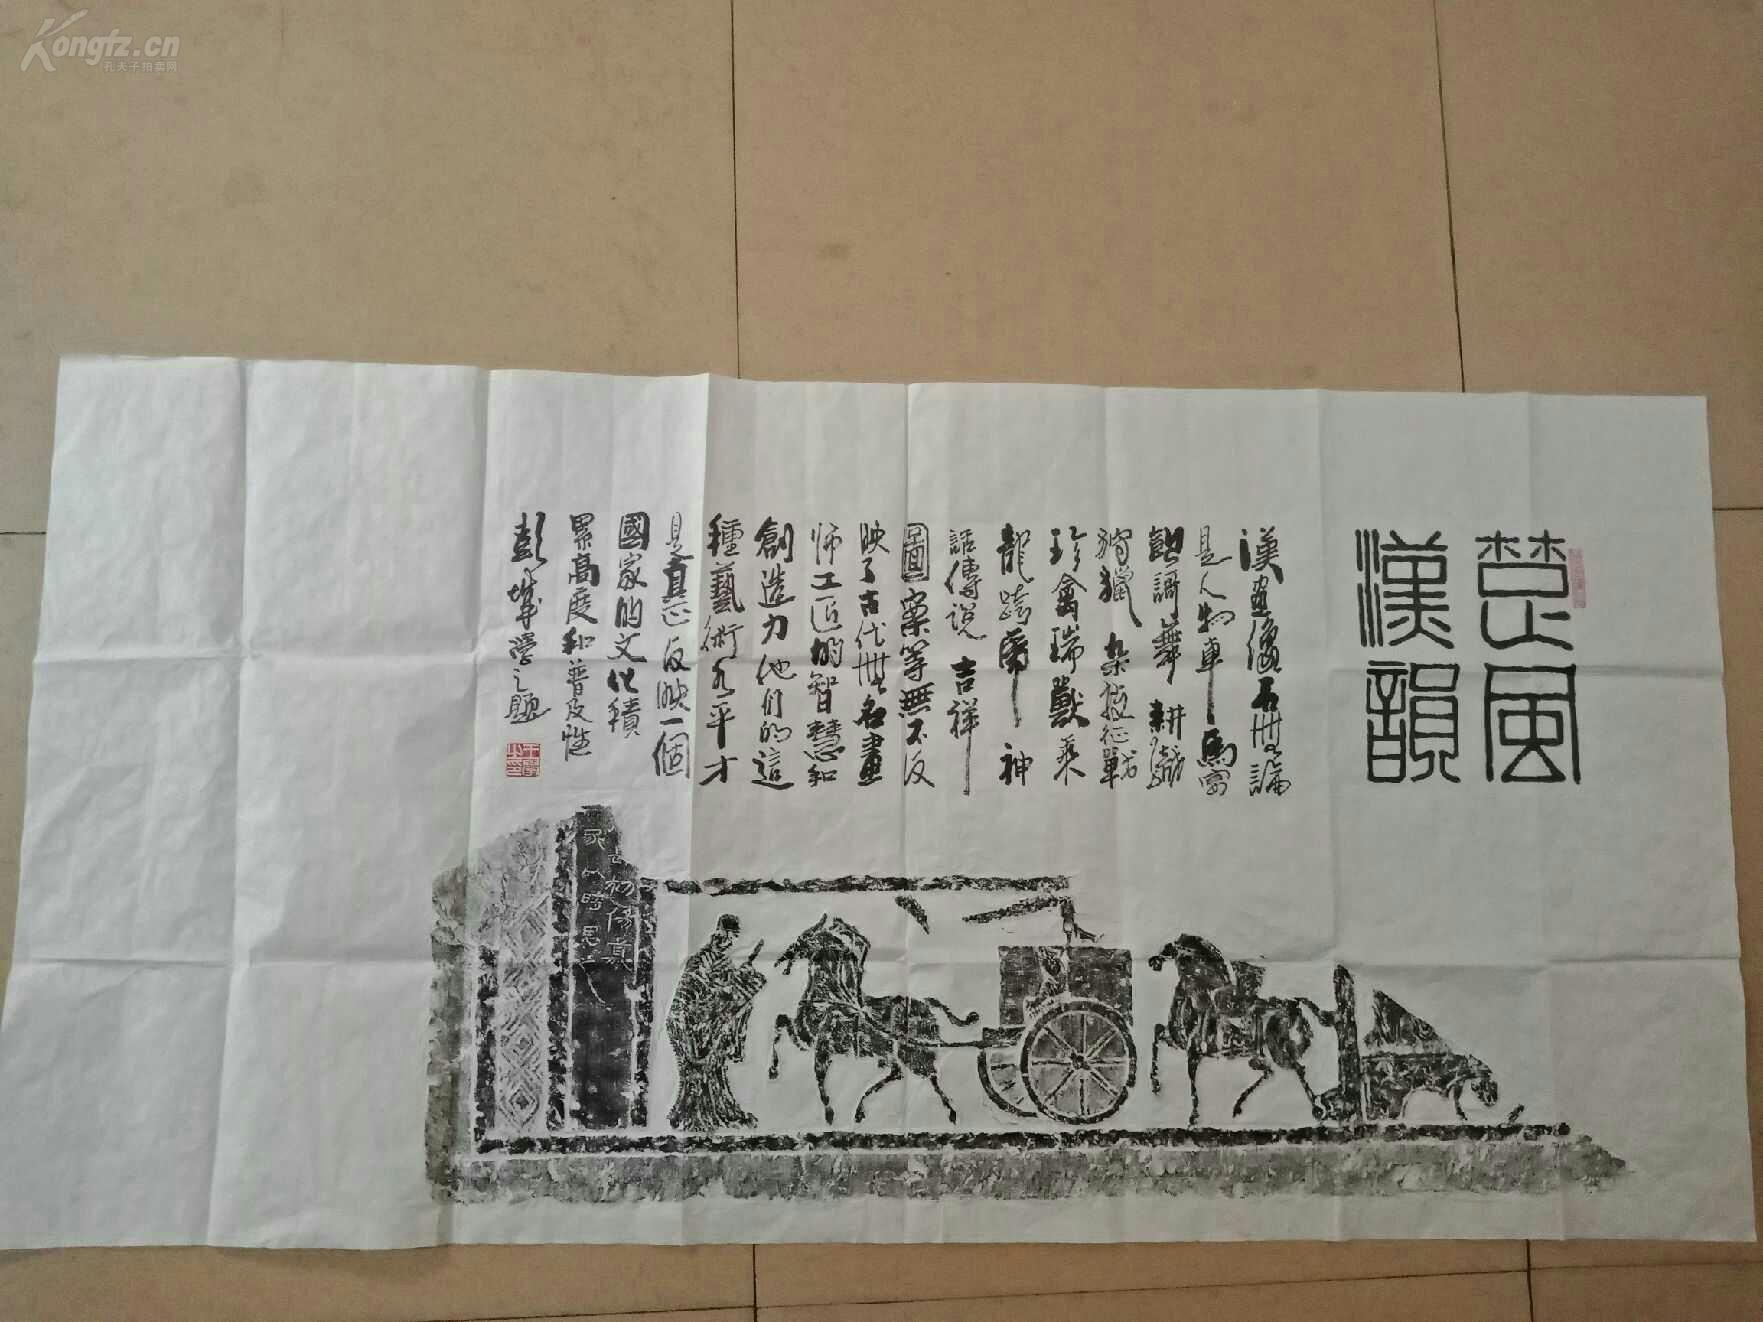 Kongfz.cn
孔夫子拍卖网
楚風
漢韻
漢画像石無論
是人物車馬宴
飲謌舞耕織
狩獵杂技征戰
珍禽瑞獸乘
龍跨虎神
話傳说吉祥
圖案等無不反
映了古代無名畫
师工匠的智慧和
創造力他们的這
種藝術水平才
是真正反映一個
國家的文化積
累高度和普及性
彭城學之題